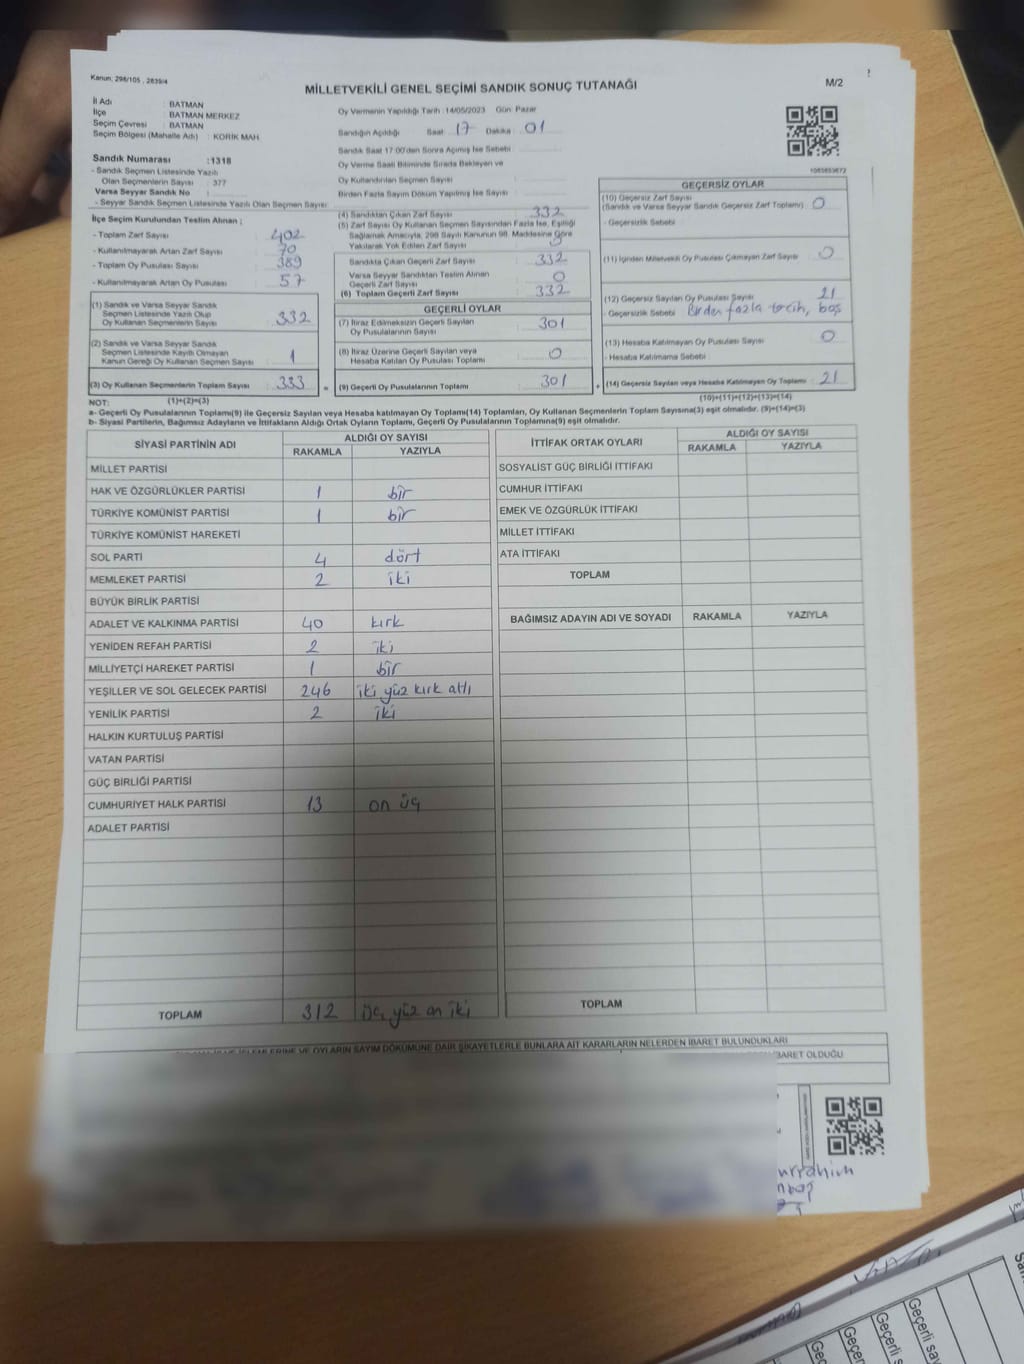 Kanun: 298/105 , 2839/4
MİLLETVEKİLİ GENEL SEÇİMİ SANDIK SONUÇ TUTANAĞI
M/2
İl Adı : BATMAN
İlçe : BATMAN MERKEZ
Seçim Çevresi : BATMAN
Seçim Bölgesi (Mahalle Adı) : KORİK MAH.
Sandık Numarası :1318
- Sandık Seçmen Listesinde Yazılı
Olan Seçmenlerin Sayısı : 377
Varsa Seyyar Sandık No :
- Seyyar Sandık Seçmen Listesinde Yazılı Olan Seçmen Sayısı:
Oy Vermenin Yapıldığı Tarih :14/05/2023 Gün: Pazar
Sandığın Açıldığı Saat 17 Dakika 01
Sandık Saat 17:00'den Sonra Açımış İse Sebebi
Oy Verme Saati Bitiminde Sırada Bekleyen ve
Oy Kullandırılan Seçmen Sayısı
Birden Fazla Sayım Döküm Yapılmış İse Sayısı
İlçe Seçim Kurulundan Teslim Alınan ;
- Toplam Zarf Sayısı : 402
- Kullanılmayarak Artan Zarf Sayısı : 70
- Toplam Oy Pusulası Sayısı : 389
- Kullanılmayarak Artan Oy Pusulası : 57
(1) Sandık ve Varsa Seyyar Sandık
Seçmen Listesinde Yazılı Olup
Oy Kullanan Seçmenlerin Sayısı : 332
(2) Sandık ve Varsa Seyyar Sandık
Seçmen Listesinde Kayıtlı Olmayan
Kanun Gereği Oy Kullanan Seçmen Sayısı : 1
(3) Oy Kullanan Seçmenlerin Toplam Sayısı : 333
(1)+(2)=(3)
(4) Sandıktan Çıkan Zarf Sayısı 332
(5) Zarf Sayısı Oy Kullanan Seçmen Sayısından Fazla İse, Eşitliği
Sağlamak Amacıyla, 298 Sayılı Kanunun 98. Maddesine Göre
Yakılarak Yok Edilen Zarf Sayısı
Sandıkta Çıkan Geçerli Zarf Sayısı : 332
Varsa Seyyar Sandıktan Teslim Alınan
Geçerli Zarf Sayısı : 0
(6) Toplam Geçerli Zarf Sayısı : 332
GEÇERLİ OYLAR
(7) İtiraz Edilmeksizin Geçerli Sayılan
Oy Pusulalarının Sayısı : 301
(8) İtiraz Üzerine Geçerli Sayılan veya
Hesaba Katılan Oy Pusulası Toplamı : 0
= (9) Geçerli Oy Pusulalarının Toplamı : 301
1083893672
GEÇERSİZ OYLAR
(10) Geçersiz Zarf Sayısı
(Sandık ve Varsa Seyyar Sandık Geçersiz Zarf Toplamı) : 0
- Geçersizlik Sebebi :
(11) İçinden Milletvekili Oy Pusulası Çıkmayan Zarf Sayısı : 0
(12) Geçersiz Sayılan Oy Pusulası Sayısı : 21
- Geçersizlik Sebebi : Birden fazla tercih, boş
(13) Hesaba Katılmayan Oy Pusulası Sayısı : 0
- Hesaba Katılmama Sebebi :
+ (14) Geçersiz Sayılan veya Hesaba Katılmayan Oy Toplamı : 21
(10)+(11)+(12)+(13)=(14)
NOT:
a- Geçerli Oy Pusulalarının Toplamı(9) ile Geçersiz Sayılan veya Hesaba katılmayan Oy Toplamı(14) Toplamları, Oy Kullanan Seçmenlerin Toplam Sayısına(3) eşit olmalıdır. (9)+(14)=(3)
b- Siyasi Partilerin, Bağımsız Adayların ve İttifakların Aldığı Oyların Toplamı, Geçerli Oy Pusulalarının Toplamına(9) eşit olmalıdır.
SİYASİ PARTİNİN ADI ALDIĞI OY SAYISI
RAKAMLA YAZIYLA
MİLLET PARTİSİ
HAK VE ÖZGÜRLÜKLER PARTİSİ 1 bir
TÜRKİYE KOMÜNİST PARTİSİ 1 bir
TÜRKİYE KOMÜNİST HAREKETİ
SOL PARTİ 4 dört
MEMLEKET PARTİSİ 2 iki
BÜYÜK BİRLİK PARTİSİ
ADALET VE KALKINMA PARTİSİ 40 kırk
YENİDEN REFAH PARTİSİ 2 iki
MİLLİYETÇİ HAREKET PARTİSİ 1 bir
YEŞİLLER VE SOL GELECEK PARTİSİ 246 iki yüz kırk altı
YENİLİK PARTİSİ 2 iki
HALKIN KURTULUŞ PARTİSİ
VATAN PARTİSİ
GÜÇ BİRLİĞİ PARTİSİ
CUMHURİYET HALK PARTİSİ 13 on üç
ADALET PARTİSİ
TOPLAM 312 üç yüz on iki
İTTİFAK ORTAK OYLARI ALDIĞI OY SAYISI
RAKAMLA YAZIYLA
SOSYALİST GÜÇ BİRLİĞİ İTTİFAKI
CUMHUR İTTİFAKI
EMEK VE ÖZGÜRLÜK İTTİFAKI
MİLLET İTTİFAKI
ATA İTTİFAKI
TOPLAM
BAĞIMSIZ ADAYIN ADI VE SOYADI RAKAMLA YAZIYLA
TOPLAM
VE OYLARIN SAYIM DÖKÜMÜNE DAİR ŞİKAYETLERLE BUNLARA AİT KARARLARIN NELERDEN İBARET BULUNDUKLARI
BARET OLDUĞU
urrahim
nbaş
Geçerli say
Geçerli s
Geçer
Geç